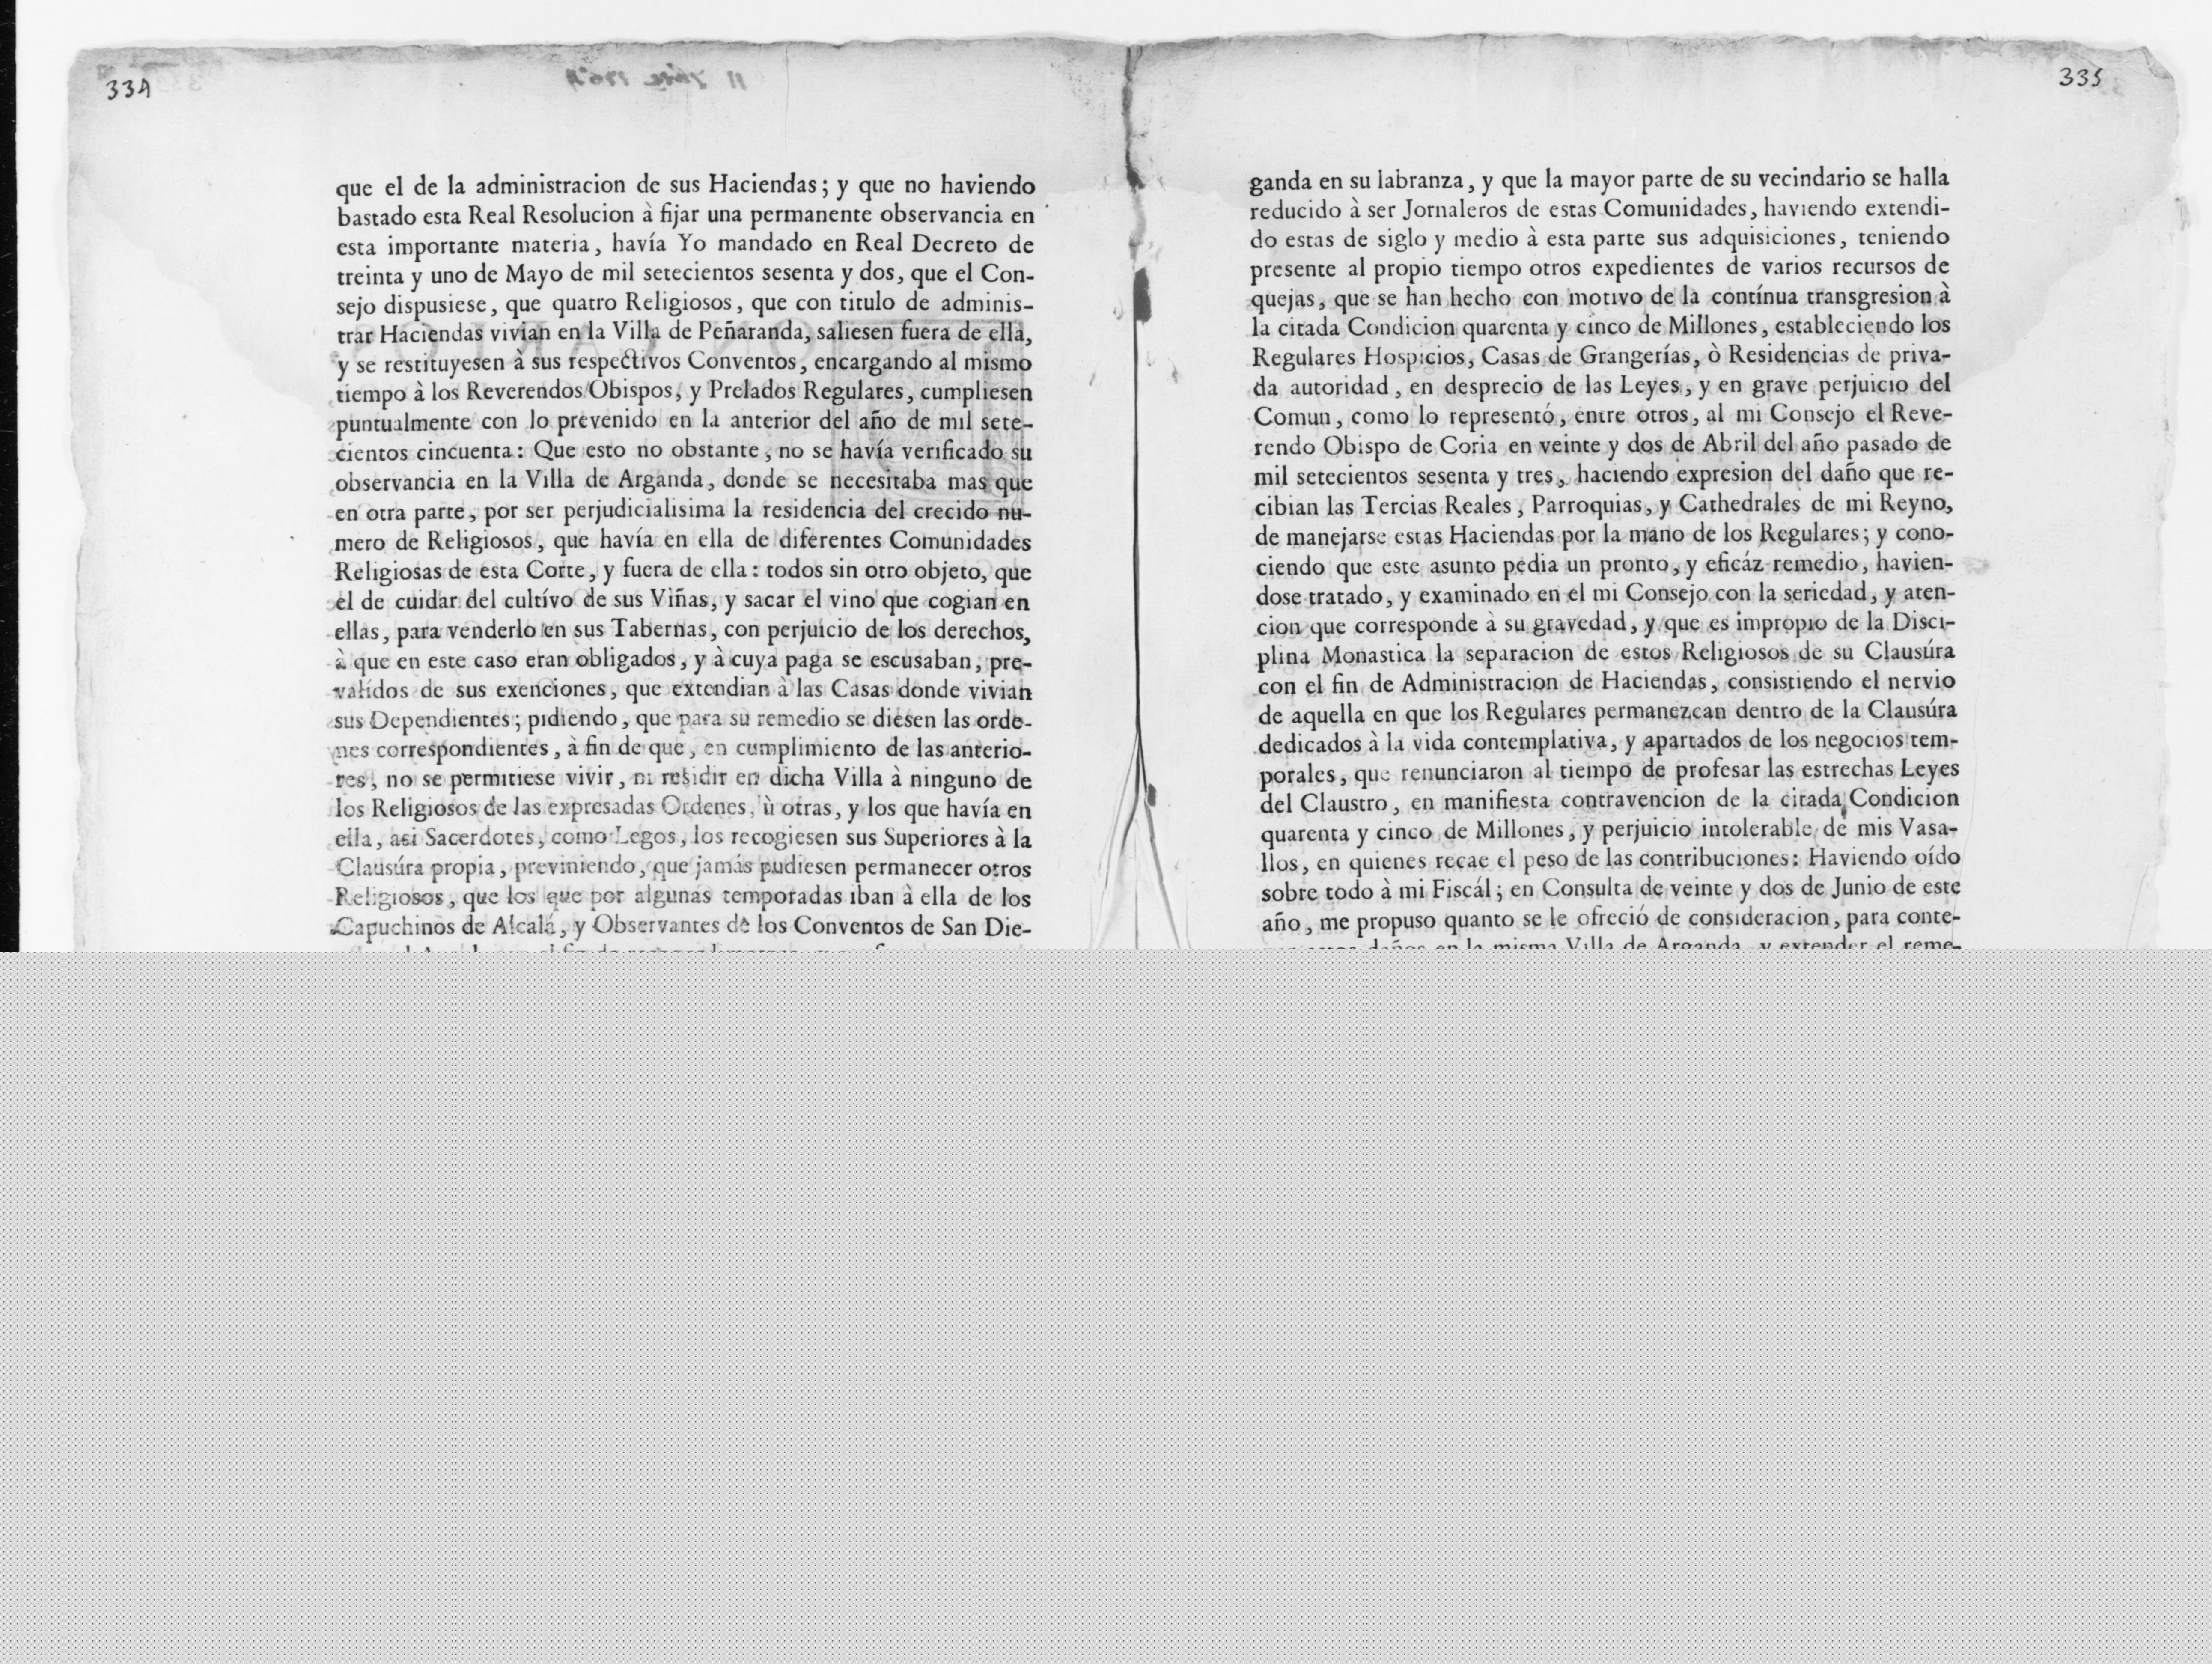 334
que el de la administracion de sus Haciendas; y que no haviendo
bastado esta Real Resolucion à fijar una permanente observancia en
esta importante materia, havía Yo mandado en Real Decreto de
treinta y uno de Mayo de mil setecientos sesenta y dos, que el Con-
sejo dispusiese, que quatro Religiosos, que con titulo de adminis-
trar Haciendas vivian en la Villa de Peñaranda, saliesen fuera de ella,
y se restituyesen à sus respectivos Conventos, encargando al mismo
tiempo à los Reverendos Obispos, y Prelados Regulares, cumpliesen
puntualmente con lo prevenido en la anterior del año de mil sete-
cientos cincuenta: Que esto no obstante, no se havía verificado su
observancia en la Villa de Arganda, donde se necesitaba mas que
en otra parte, por ser perjudicialisima la residencia del crecido nu-
mero de Religiosos, que havía en ella de diferentes Comunidades
Religiosas de esta Corte, y fuera de ella: todos sin otro objeto, que
el de cuidar del cultívo de sus Viñas, y sacar el vino que cogian en
ellas, para venderlo en sus Tabernas, con perjuicio de los derechos,
à que en este caso eran obligados, y à cuya paga se escusaban, pre-
valídos de sus exenciones, que extendian à las Casas donde vivian
sus Dependientes; pidiendo, que para su remedio se diesen las orde-
nes correspondientes, à fin de que, en cumplimiento de las anterio-
res, no se permitiese vivir, ni residir en dicha Villa à ninguno de
los Religiosos de las expresadas Ordenes, ù otras, y los que havía en
ella, asi Sacerdotes, como Legos, los recogiesen sus Superiores à la
Clausúra propia, previniendo, que jamás pudiesen permanecer otros
Religiosos, que los que por algunas temporadas iban à ella de los
Capuchinos de Alcalá, y Observantes de los Conventos de San Die-
335
ganda en su labranza, y que la mayor parte de su vecindario se halla
reducido à ser Jornaleros de estas Comunidades, haviendo extendi-
do estas de siglo y medio à esta parte sus adquisiciones, teniendo
presente al propio tiempo otros expedientes de varios recursos de
quejas, que se han hecho con motivo de la contínua transgresion à
la citada Condicion quarenta y cinco de Millones, estableciendo los
Regulares Hospicios, Casas de Grangerías, ò Residencias de priva-
da autoridad, en desprecio de las Leyes, y en grave perjuicio del
Comun, como lo representó, entre otros, al mi Consejo el Reve-
rendo Obispo de Coria en veinte y dos de Abril del año pasado de
mil setecientos sesenta y tres, haciendo expresion del daño que re-
cibian las Tercias Reales, Parroquias, y Cathedrales de mi Reyno,
de manejarse estas Haciendas por la mano de los Regulares; y cono-
ciendo que este asunto pedia un pronto, y eficáz remedio, havien-
dose tratado, y examinado en el mi Consejo con la seriedad, y aten-
cion que corresponde à su gravedad, y que es impropio de la Disci-
plina Monastica la separacion de estos Religiosos de su Clausúra
con el fin de Administracion de Haciendas, consistiendo el nervio
de aquella en que los Regulares permanezcan dentro de la Clausúra
dedicados à la vida contemplativa, y apartados de los negocios tem-
porales, que renunciaron al tiempo de profesar las estrechas Leyes
del Claustro, en manifiesta contravencion de la citada Condicion
quarenta y cinco de Millones, y perjuicio intolerable de mis Vasa-
llos, en quienes recae el peso de las contribuciones: Haviendo oído
sobre todo à mi Fiscál; en Consulta de veinte y dos de Junio de este
año, me propuso quanto se le ofreció de consideracion, para conte-
daños en la misma Villa de Arganda, y extender el reme-